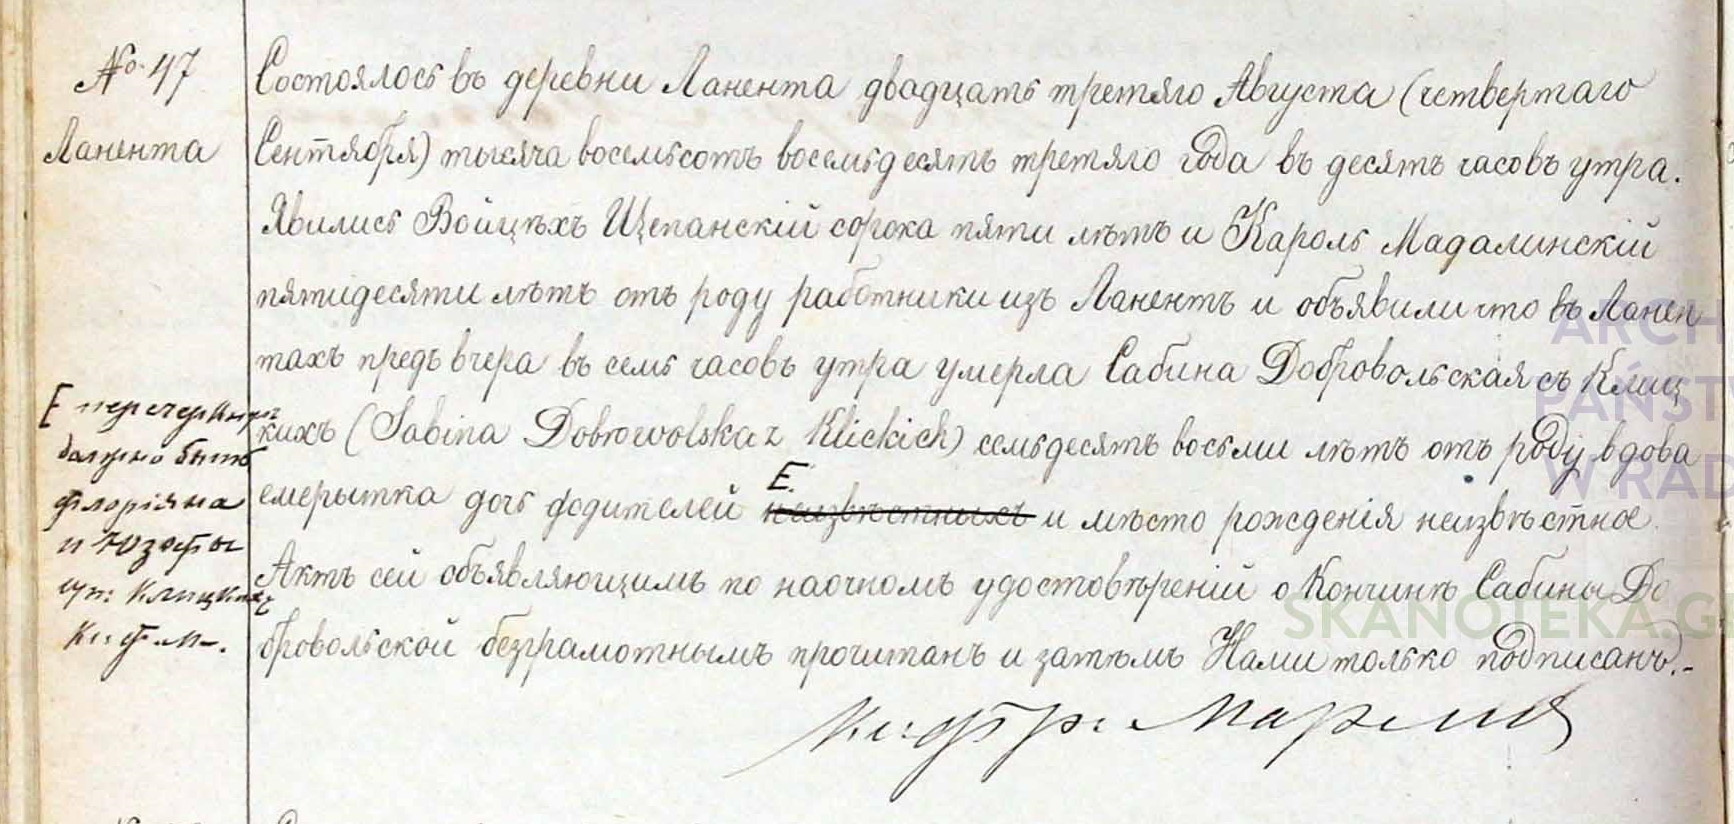 № 47
Ланента
Состоялось въ деревни Ланента двадцать третяго Августа (четвертаго
Сентября) тысяча восемьсотъ восемьдесятъ третяго года въ десять часовъ утра.
Явились Войцѣхъ Щепанскій сорока пяти лѣтъ и Кароль Мадалинскій
пятидесяти лѣтъ отъ роду работники изъ Ланентъ и объявили что въ Ланен
тахъ предъ вчера въ семь часовъ утра умерла Сабина Добровольская съ Клиц
кихъ (Sabina Dobrowolska z Klickich) семьдесятъ восьми лѣтъ отъ роду вдова
емерытка дочь родителей Е. неизвѣстныхъ и мѣсто рожденія неизвѣстное
Актъ сей объявляющимъ по наочномъ удостовѣреній о Кончинѣ Сабины До
бровольской безграмотнымъ прочитанъ и затѣмъ Нами только подписанъ.-
Е перечеркнут
должно быть
Флоріяна
и Юзефы
суп: Клицкихъ
Кс. Ф. М-.
ARCH
PAŃST
W RAD
SKANOTEKA.G